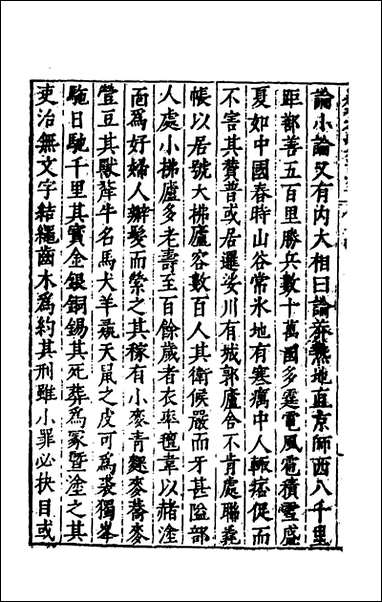 論小論又有内大相曰論莽熱地直京師西八千里
距鄯善五百里勝兵數十萬國多霆電風雹積雪盛
夏如中國春時山谷常氷地有寒癘中人輙痞促而
不害其贊普或居邏娑川有城郭廬舍不肯處聯毳
帳以居號大梻廬容數百人其衛候嚴而牙甚隘部
人處小梻廬多老壽至百餘歲者衣率氊韋以赭塗
面爲好婦人辮髮而縈之其稼有小麥青麴麥蕎麥
䝁豆其獸犛牛名馬犬羊彘天鼠之皮可爲裘獨峯
駞日馳千里其寶金銀銅錫其死葬爲冢塈塗之其
吏治無文字結繩齒木爲約其刑雖小罪必抉目或